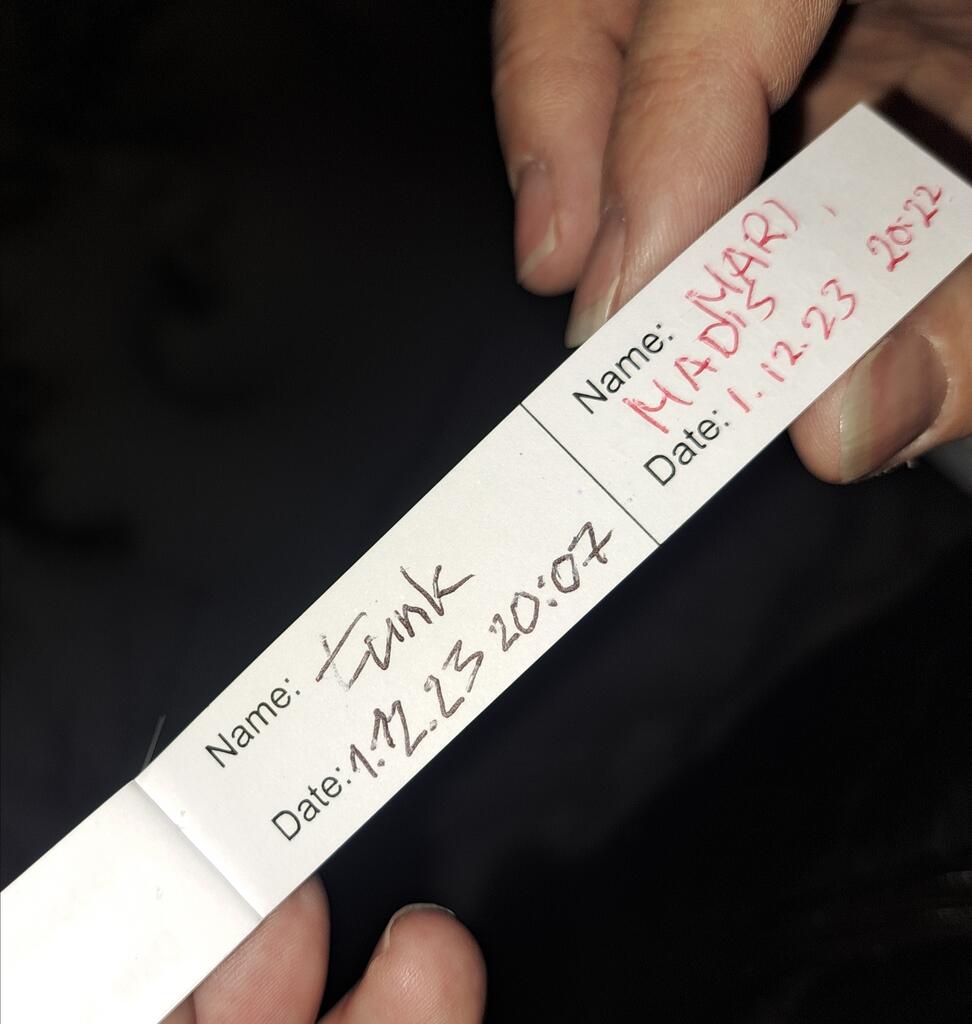 Name: tunk
Date: 1.12.23 20:07
Name: MARI,
MADIS
Date: 1.12.23 20:22